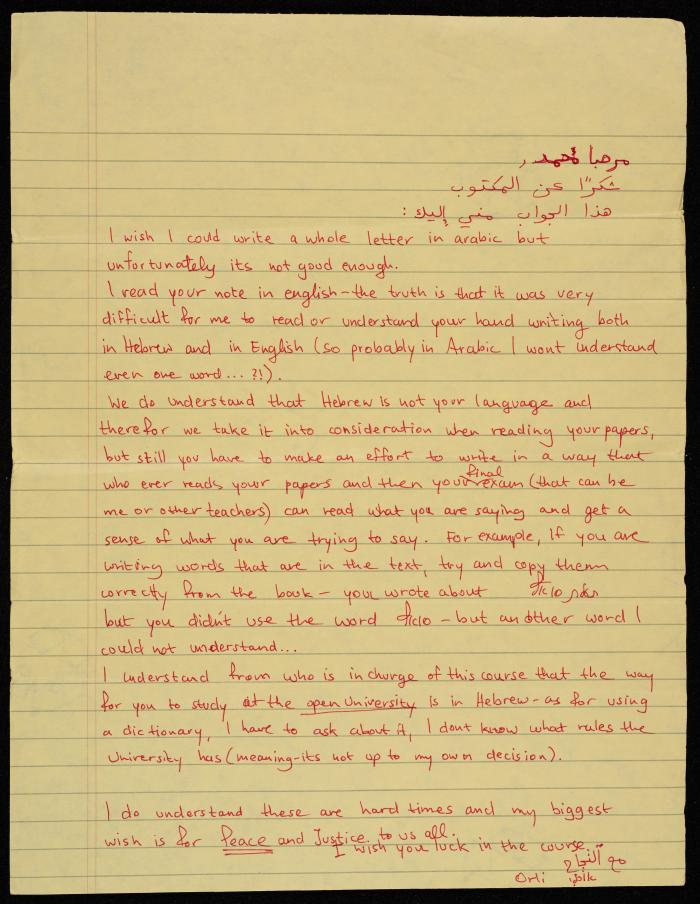 مرحبا محمد,
شكرًا عن المكتوب
هذا الجواب مني إليك:
I wish I could write a whole letter in arabic but
unfortunately its not good enough.
I read your note in english - the truth is that it was very
difficult for me to read or understand your hand writing both
in Hebrew and in English (so probably in Arabic I wont understand
even one word... ?!).
We do understand that Hebrew is not your language and
therefor we take it into consideration when reading your papers,
but still you have to make an effort to write in a way that
who ever reads your papers and then your final exam (that can be
me or other teachers) can read what you are saying and get a
sense of what you are trying to say. For example, If you are
writing words that are in the text, try and copy them
correctly from the book - you wrote about
but you didn't use the word - but another word I
could not understand...
I understand from who is in charge of this course that the way
for you to study at the open University is in Hebrew - as for using
a dictionary, I have to ask about it, I dont know what rules the
University has (meaning - its not up to my own decision).
I do understand these are hard times and my biggest
wish is for Peace and Justice to us all.
I wish you luck in the course.
مع النجاح
Orli